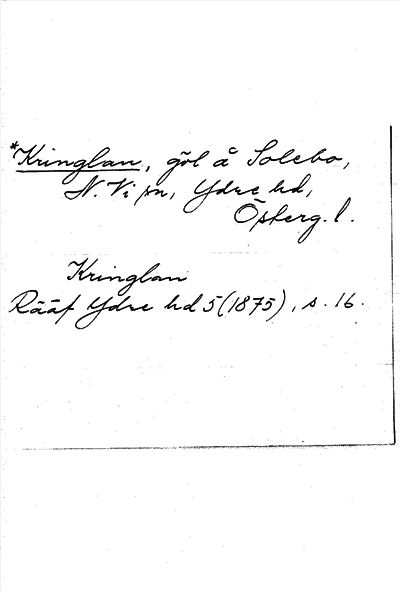 *Kringlan, göl å Solebo,
N. Vi sn, Ydre hd,
Österg. l.
Kringlan
Rääf Ydre hd 5 (1875), s. 16.